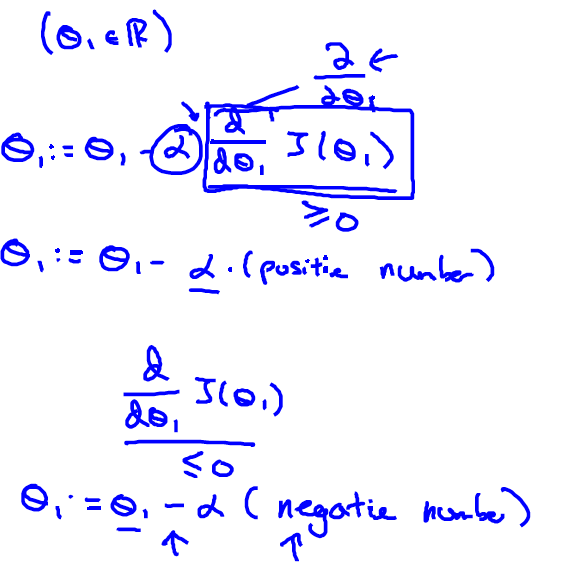 (θ₁ ∈ ℝ)
∂/∂θ₁ ←
θ₁ := θ₁ - α d/dθ₁ J(θ₁)
≥ 0
θ₁ := θ₁ - α · (positie number)
d/dθ₁ J(θ₁)
≤ 0
θ₁ := θ₁ - α (negatie number)
↑ ↑